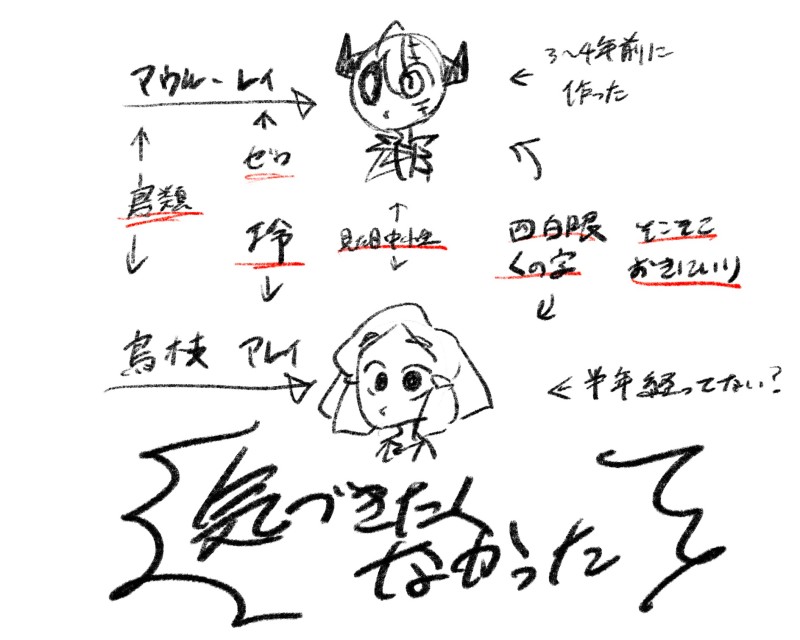 マウル-レイ
3～4年前に
作った
ゼロ
鳥類
玲
見た目中性
四白眼
くの字
そこそこ
おきにいり
烏枝 アレイ
半年経ってない?
気づきたく
なかった